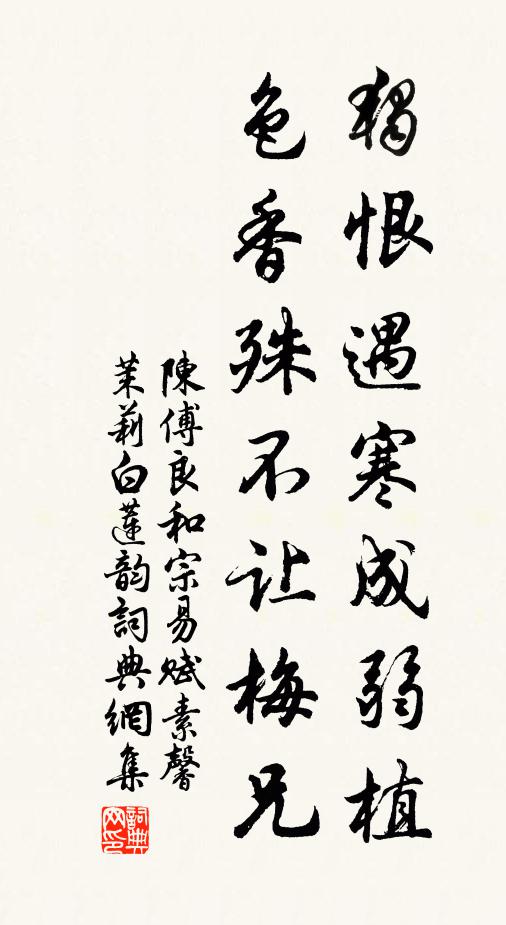 獨恨遇寒成弱植
色香殊不让梅兄
陳傅良和宗易賦素馨
茉莉白蓮韵詞典網集
詞典网印